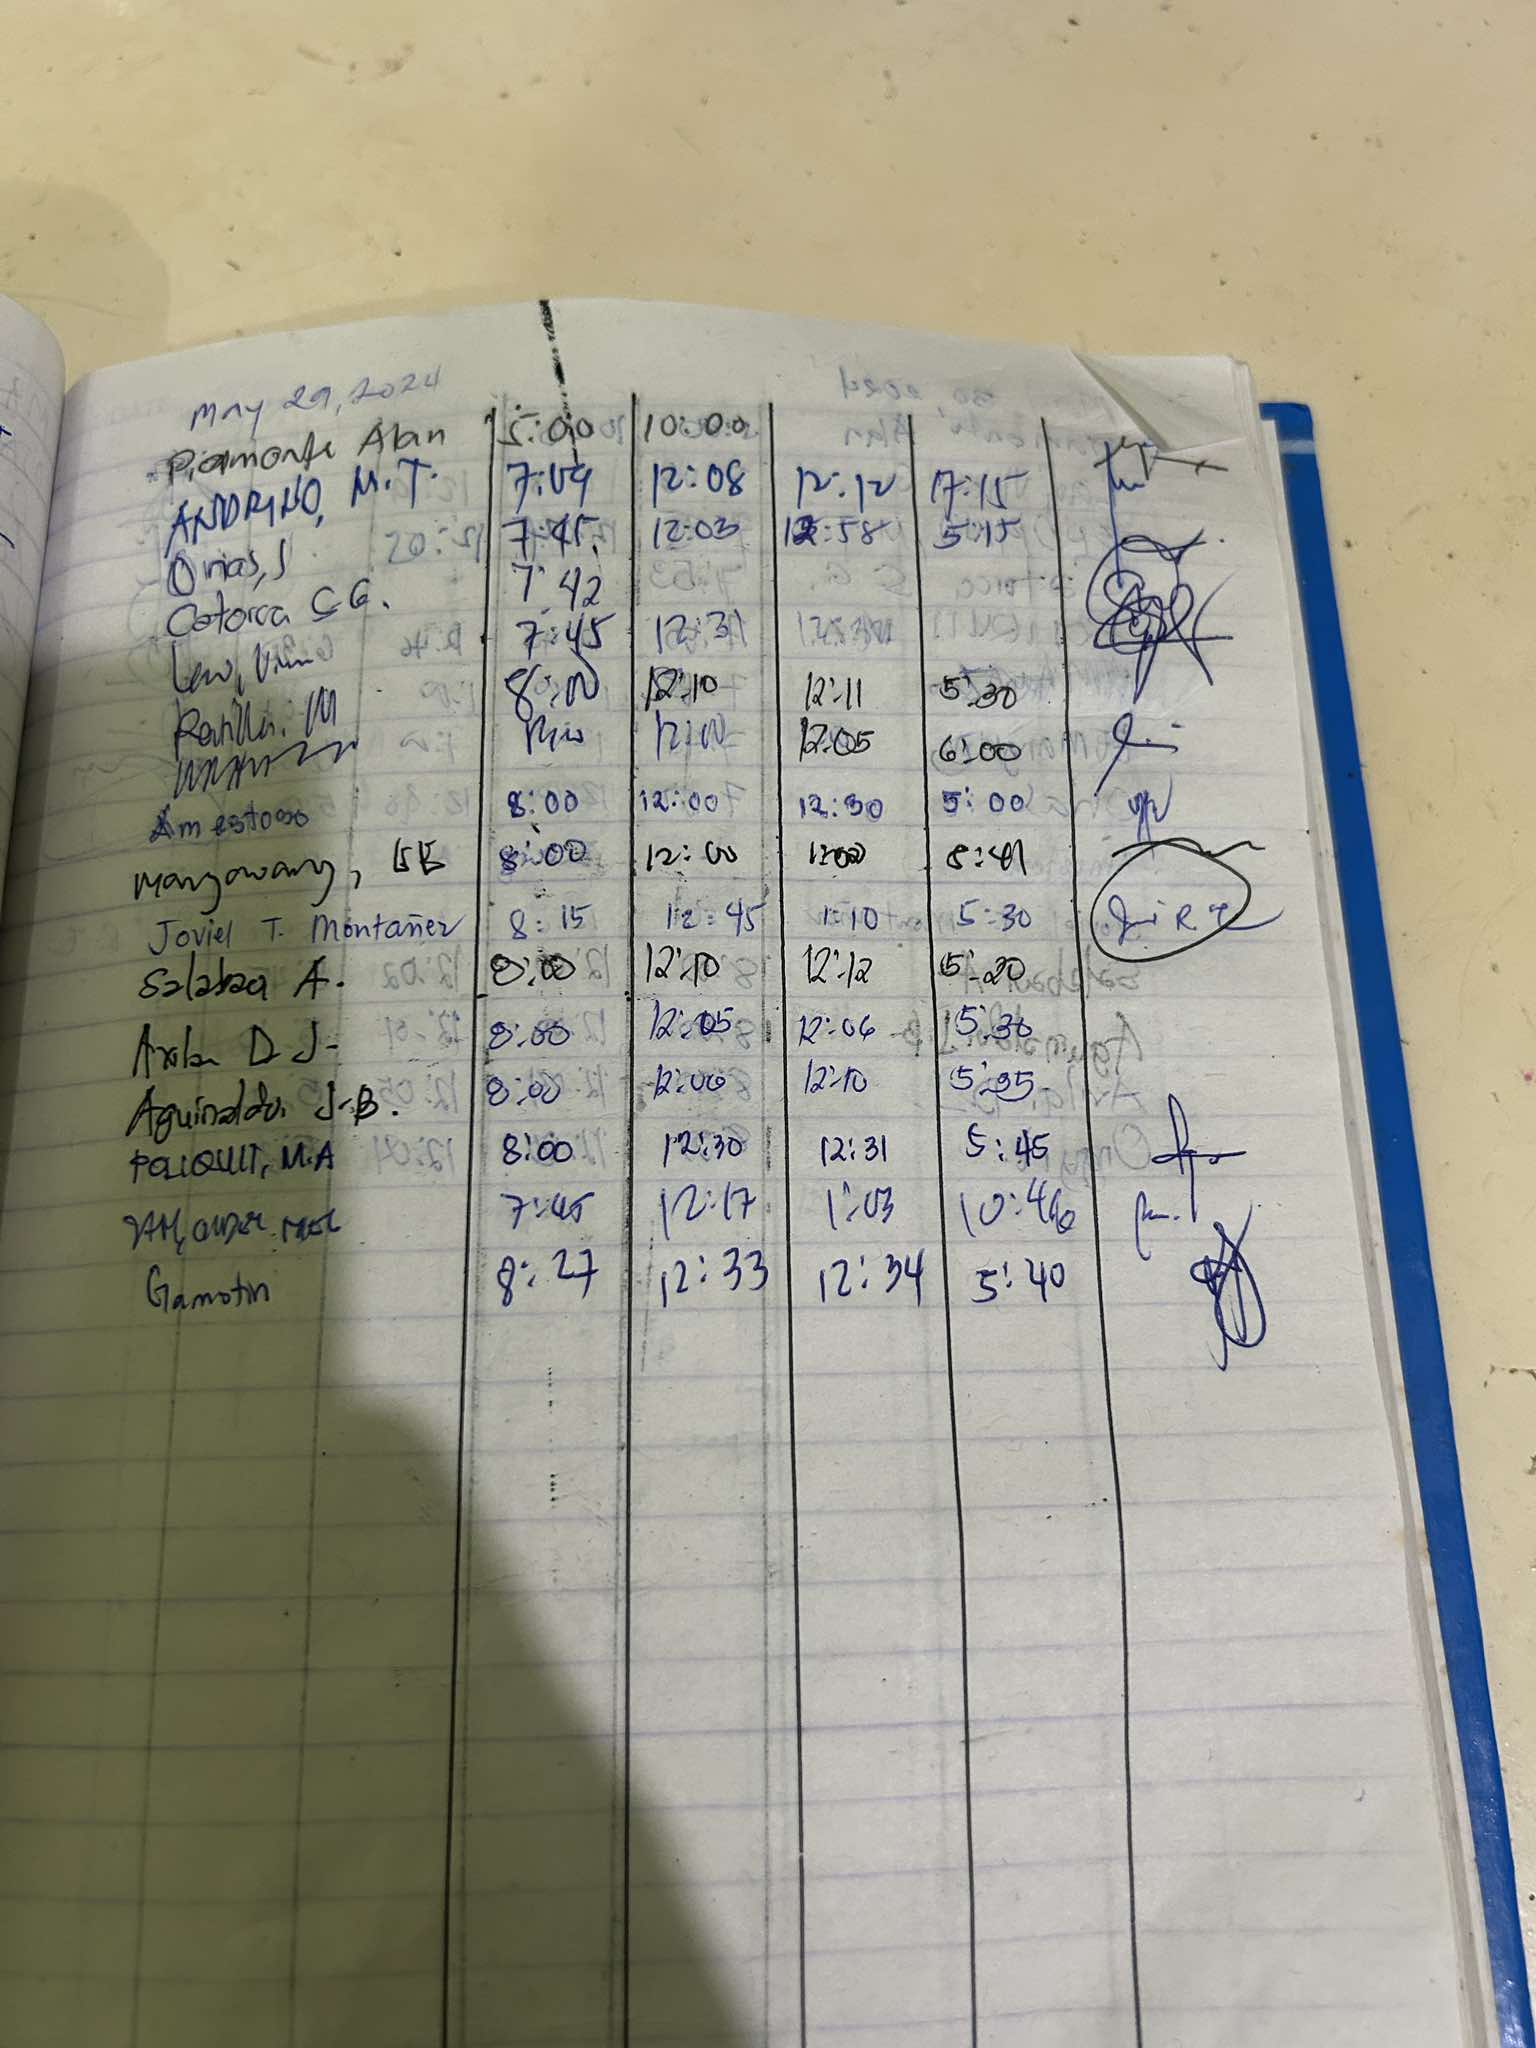 May 29, 2024
Piamonte Alan 5:00 10:00
ANDRINO, M.T. 7:09 12:08 12:12 17:15
Orias, J 7:45 12:03 12:58 5:15
Catorca S G. 7:42
7:45 12:31
Ratilla. M 8:00 12:10 12:11 5:30
12:00 12:05 6:00
Amestoso 8:00 12:00 12:30 5:00
8:00 12:00 1:00 8:41
Joviel T. Montañez 8:15 12:45 1:10 5:30
Salabaa A. 8:00 12:10 12:12 5:20
D J- 8:00 12:05 12:06 5:30
Aguinaldo. J-B. 8:00 12:06 12:10 5:35
POLIQUIT, M.A 8:00 12:30 12:31 5:45
7:45 12:17 1:03 10:46
Gamotin 8:27 12:33 12:34 5:40